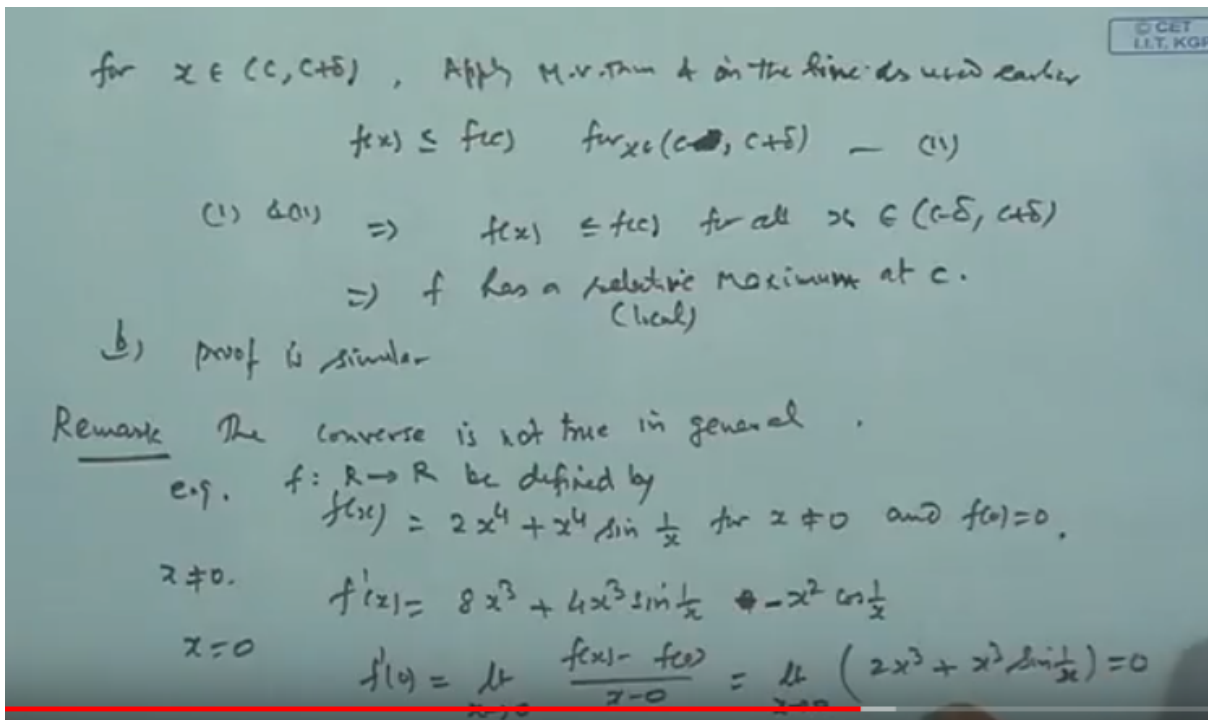 © CET
I.I.T. KGP
for x ∈ (c, c+δ) , Apply M.V. Thm & in the line as used earlier
f(x) ≤ f(c) for x ∈ (c, c+δ) — (11)
(1) & (11) ⇒ f(x) ≤ f(c) for all x ∈ (c-δ, c+δ)
⇒ f has a relative maximum at c.
(local)
b) proof is similar
Remark The converse is not true in general .
e.g. f : R → R be defined by
f(x) = 2x⁴ + x⁴ sin 1/x for x ≠ 0 and f(0)=0.
x ≠ 0. f'(x) = 8x³ + 4x³ sin 1/x - x² cos 1/x
x = 0 f'(0) = lt x→0 f(x) - f(0) / x-0 = lt x→0 ( 2x³ + x³ sin 1/x ) = 0